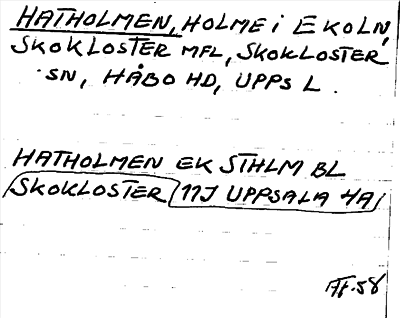 HATHOLMEN, HOLME i EKOLN,
SKOKLOSTER MFL, SKOKLOSTER
SN, HÅBO HD, UPPS L.
HATHOLMEN EK STHLM BL
SKOKLOSTER 11J UPPSALA 4A